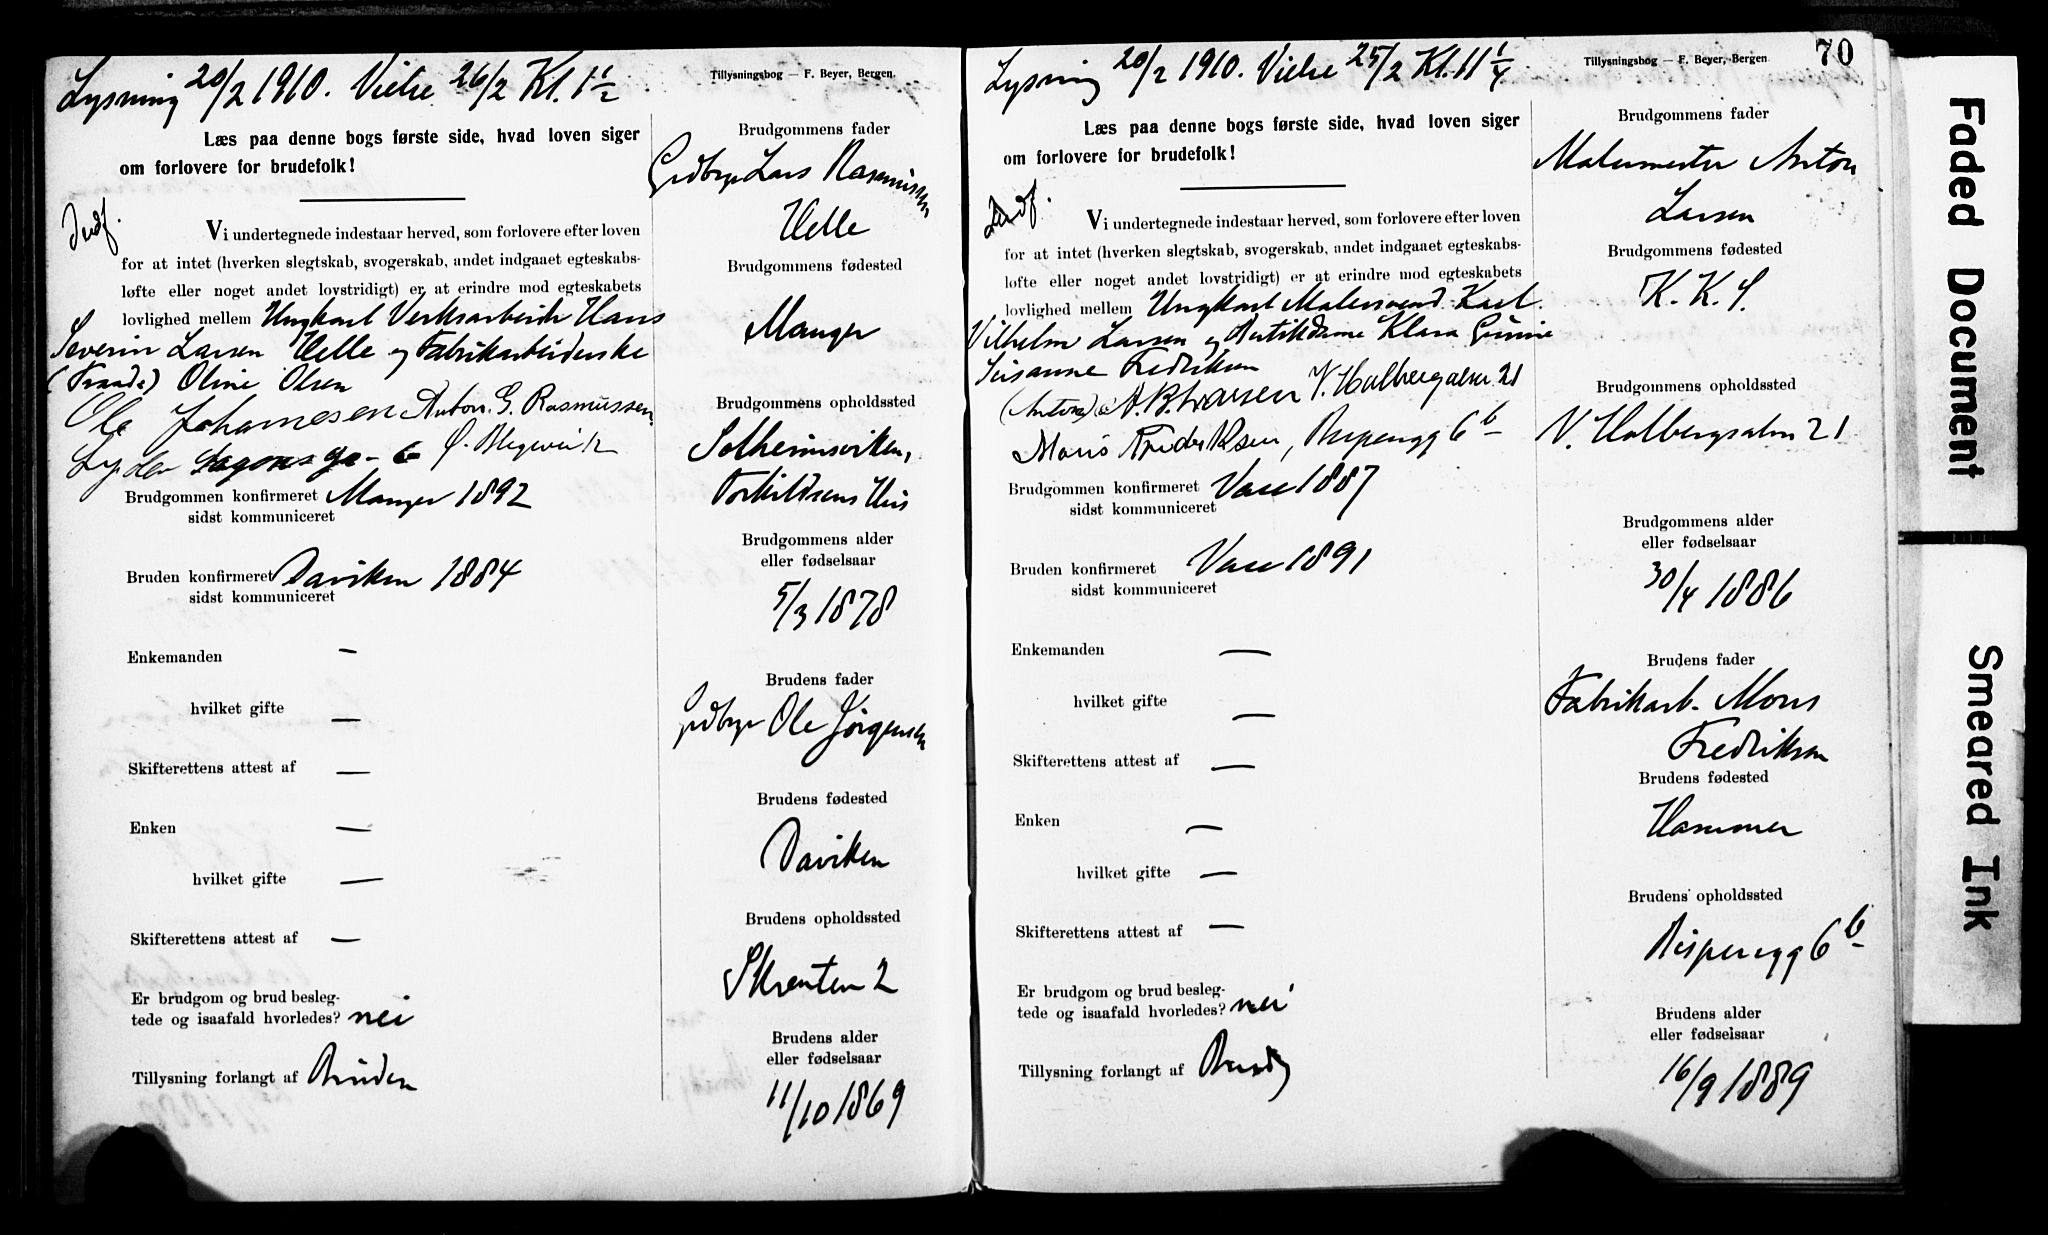 Lysning 20/2 1910. Vielse 26/2 Kl. 1 1/2
Tillysningsbog — F. Beyer, Bergen.
Læs paa denne bogs første side, hvad loven siger
om forlovere for brudefolk!
Indf.
Vi undertegnede indestaar herved, som forlovere efter loven
for at intet (hverken slegtskab, svogerskab, andet indgaaet egteskabs-
løfte eller noget andet lovstridigt) er at erindre mod egteskabets
lovlighed mellem Ungkarl Verksarbeider Hans
Severin Larsen Helle og Fabrikarbeiderske
(Fraade) Oline Olsen
Ole Johannesen Anton. G. Rasmussen
Brudgommen konfirmeret Manger 1892
sidst kommuniceret
Bruden konfirmeret Daviken 1884
sidst kommuniceret
Enkemanden —
hvilket gifte —
Skifterettens attest af —
Enken —
hvilket gifte —
Skifterettens attest af —
Er brudgom og brud besleg-
tede og isaafald hvorledes? nei
Tillysning forlangt af Bruden
Brudgommens fader
Grdbr Lars Rasmussen
Helle
Brudgommens fødested
Manger
Brudgommens opholdssted
Solheimsviken,
Torkildsens Hus
Brudgommens alder
eller fødselsaar
5/3 1878
Brudens fader
Grdbr Ole Jørgensen
Brudens fødested
Daviken
Brudens opholdssted
Skrenten 2
Brudens alder
eller fødselsaar
11/10 1869
Lysning 20/2 1910. Vielse 25/2 Kl. 11 1/4
Tillysningsbog — F. Beyer, Bergen
70
Læs paa denne bogs første side, hvad loven siger
om forlovere for brudefolk!
Indf.
Vi undertegnede indestaar herved, som forlovere efter loven
for at intet (hverken slegtskab, svogerskab, andet indgaaet egteskabs-
løfte eller noget andet lovstridigt) er at erindre mod egteskabets
lovlighed mellem Ungkarl Malersvend Karl
Vilhelm Larsen og Butikdame Klara Gunine
Susanne Fredriksen
(Anton) A. B. Larsen V. Holbergsalm 21
Mons Frederiksen, Rispenygg 6 b
Brudgommen konfirmeret Vaar 1887
sidst kommuniceret
Bruden konfirmeret Vaar 1891
sidst kommuniceret
Enkemanden —
hvilket gifte —
Skifterettens attest af —
Enken —
hvilket gifte —
Skifterettens attest af —
Er brudgom og brud besleg-
tede og isaafald hvorledes? nei
Tillysning forlangt af Brudg
Brudgommens fader
Malermester Anton
Larsen
Brudgommens fødested
K. K. S.
Brudgommens opholdssted
V. Holbergsalm 21
Brudgommens alder
eller fødselsaar
30/4 1886
Brudens fader
Fabrikarb. Mons
Fredriksen
Brudens fødested
Hammer
Brudens opholdssted
Rispenygg 6 b
Brudens alder
eller fødselsaar
16/9 1889
Faded Document
Smeared Ink